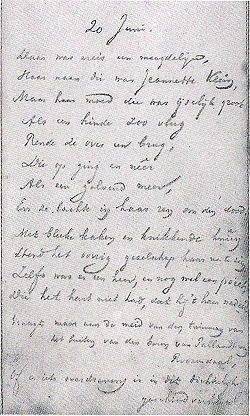 20 Juni.
Daar was ereis een maagdelijn,
Haar naam die was Jeannette Klein,
Maar haar moed die was ijselijk groot
Als een hinde zoo vlug
Rende ze over een brug,
Die op ging en neêr
Als een golvend meer,
En ze lachte in haar om den dood
Met bleeke kaken en knikkende knieën
Stond het overig gezelschap haar na te zien
Zelfs was er een heer, en nog wel een poëet
Die het hart niet had, dat hij 't haar nadeed
Vraagt maar aan de meid van den tuinman van
het buiten van den baron van Pallandt
Rozendaal,
Of er iets overdrevens is in dit